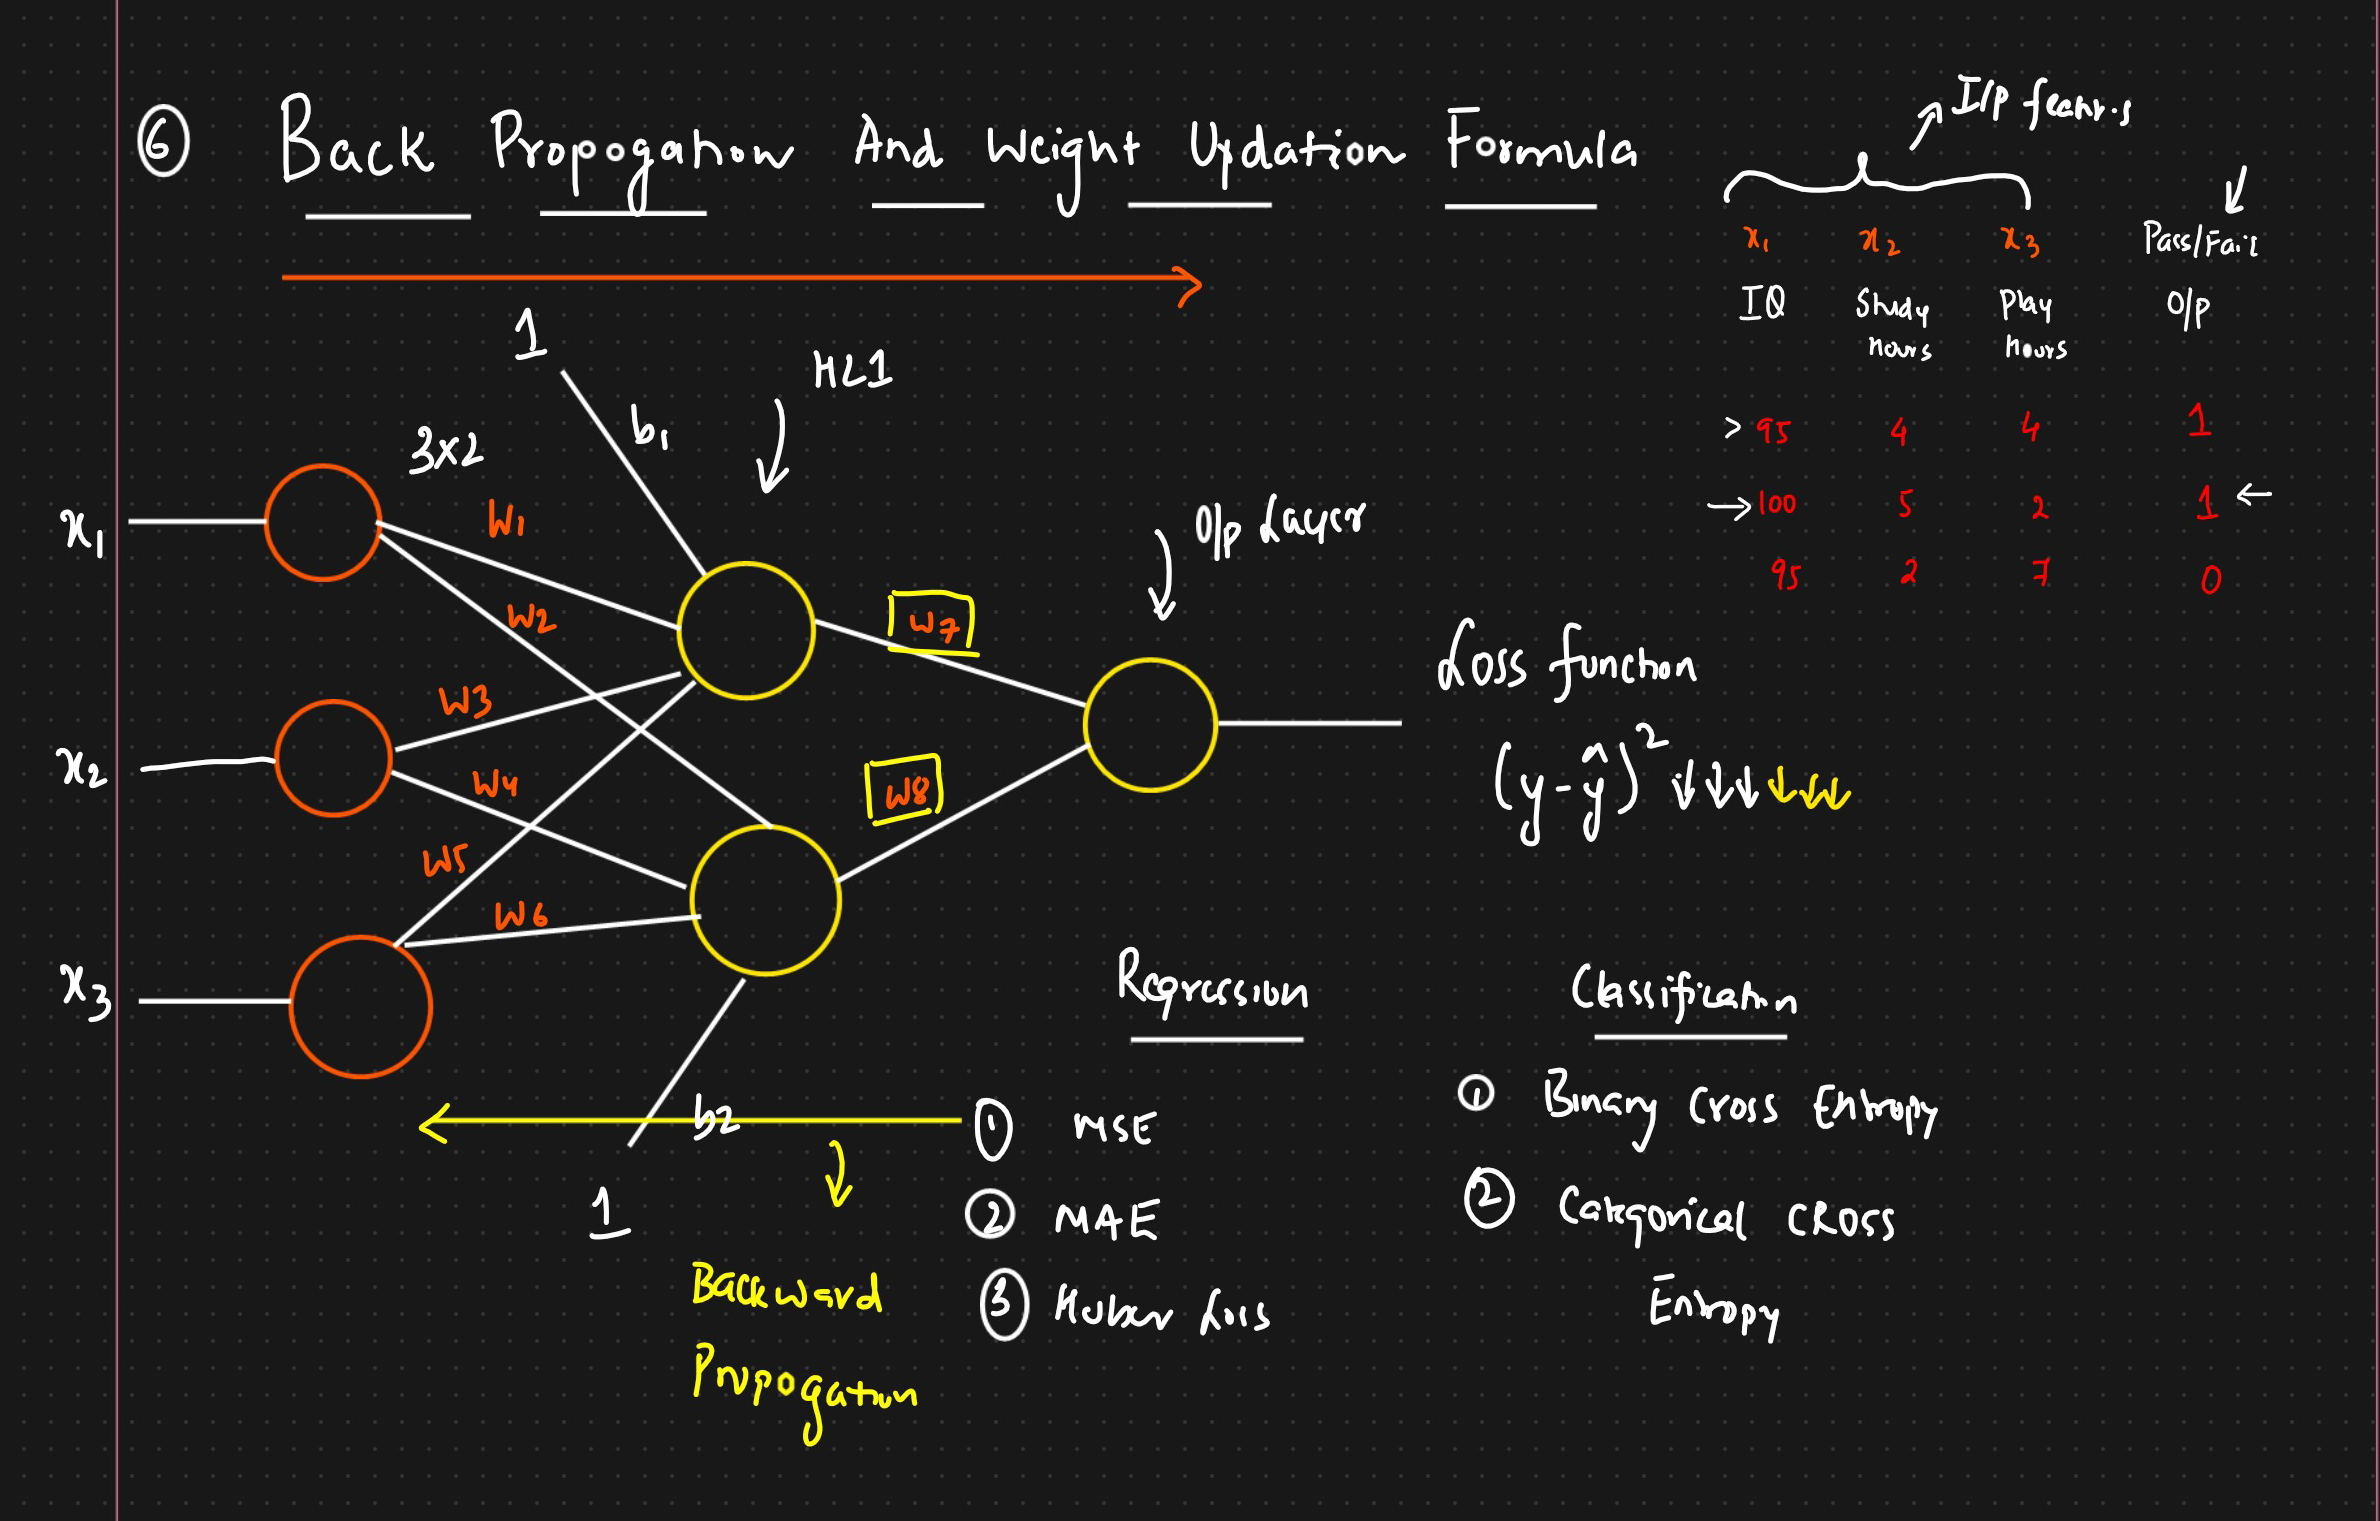 6 Back Propogation And Weight Updation Formula
I/p featr.s
x1 x2 x3 Pass/Fail
IQ Study hours Play hours O/p
> 95 4 4 1
→ 100 5 2 1 ←
95 2 7 0
1
b1
HL1
3x2
x1
W1
W2
O/p Layer
W7
W3
x2
W4
W8
W5
W6
x3
b2
1
Loss function
(y-ŷ)² ↓↓↓ ↓↓↓
Backward
Propogation
Regression
1 MSE
2 MAE
3 Huber Loss
Classification
1 Binary Cross Entropy
2 Categorical CROSS
Entropy